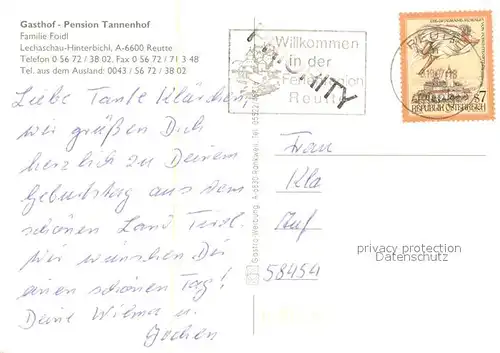 Gasthof - Pension Tannenhof
Familie Foidl
Lechaschau-Hinterbichl, A-6600 Reutte
Telefon 0 56 72 / 38 02. Fax 0 56 72 / 71 3 48
Tel. aus dem Ausland: 0043 / 56 72 / 38 02
Liebe Tante Klärchen,
wir grüßen Dich
herzlich zu Deinem
Geburtstag aus dem
schönen Land Tirol.
Wir wünschen Dir
einen schönen Tag!
Deine Wilma u.
Jochen
Willkommen
in der
Ferienregion
Reutte
PRIORITY
REUTTE
S7
REPUBLIK ÖSTERREICH
Gastro-Werbung, A-6830 Rankweil, Tel. 05522
Frau
Kla
Auf
58454
privacy protection
Datenschutz